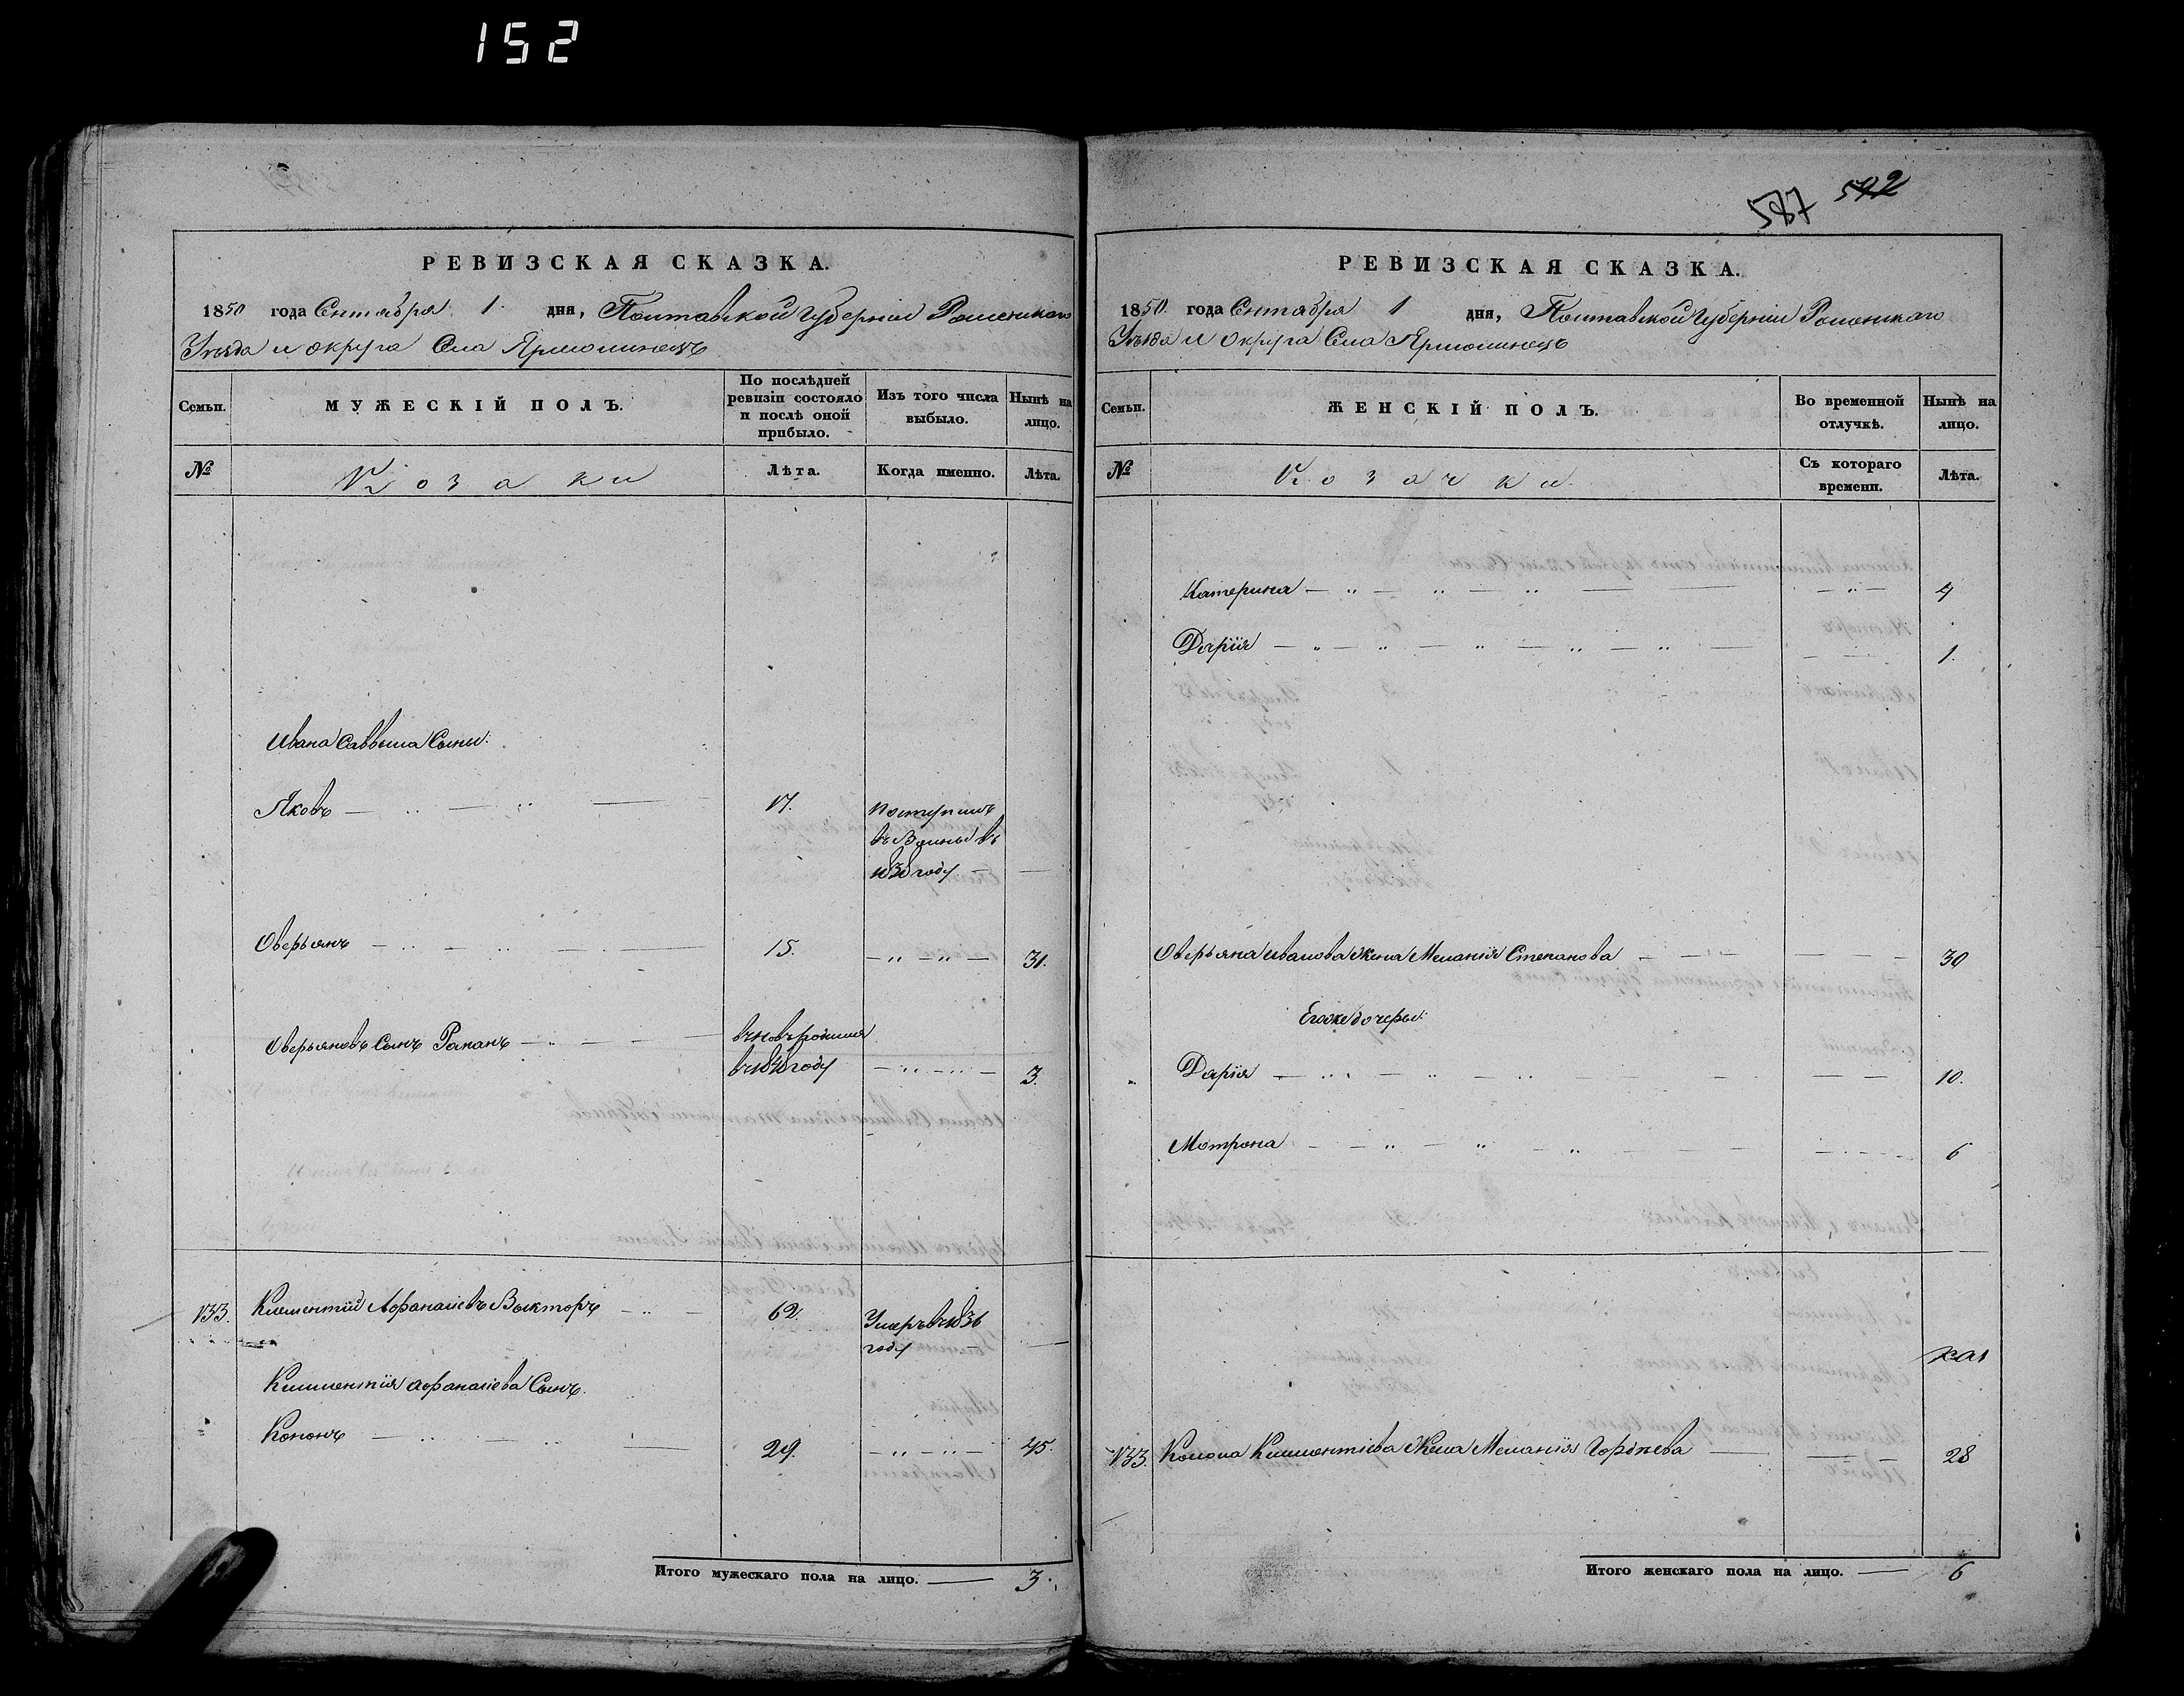 152
587 592
РЕВИЗСКАЯ СКАЗКА.
1850 года Сентября 1. дня, Полтавской Губерніи Роменскаго
Уезда и округа Села Ярмолинецъ
Семьи.
МУЖЕСКІЙ ПОЛЪ.
По послѣдней ревизіи состояло и послѣ оной прибыло.
Изъ того числа выбыло.
Нынѣ на лицо.
№
Козаки
Лѣта.
Когда именно.
Лѣта.
Ивана Саввина Сыны:
Яковъ 17. поступилъ
въ
году
Оверьянъ 15. 31.
Оверьяновъ Сынъ Раманъ вновьродился
году 3.
133. Климентий Афанасиевъ 62. Умеръ в 1836
году
Климентия Афанасиева Сынъ.
Кононъ 29. 45.
Итого мужескаго пола на лицо. 3.
РЕВИЗСКАЯ СКАЗКА.
1850. года Сентября 1 дня, Полтавской Губерніи Роменскаго
Уезда и Округа Села Ярмолинецъ
Семьи.
ЖЕНСКІЙ ПОЛЪ.
Во временной отлучкѣ.
Нынѣ на лицо.
№
Козачки.
Съ котораго времени.
Лѣта.
Катерина 4
Дарія 1.
Оверьяна Иванова Жена Меланія Степанова 30
Егоже дочеры:
Дарія 10.
Мотрона 6
133. Конона Климентіева Жена Меланія 28
Итого женскаго пола на лицо. 6